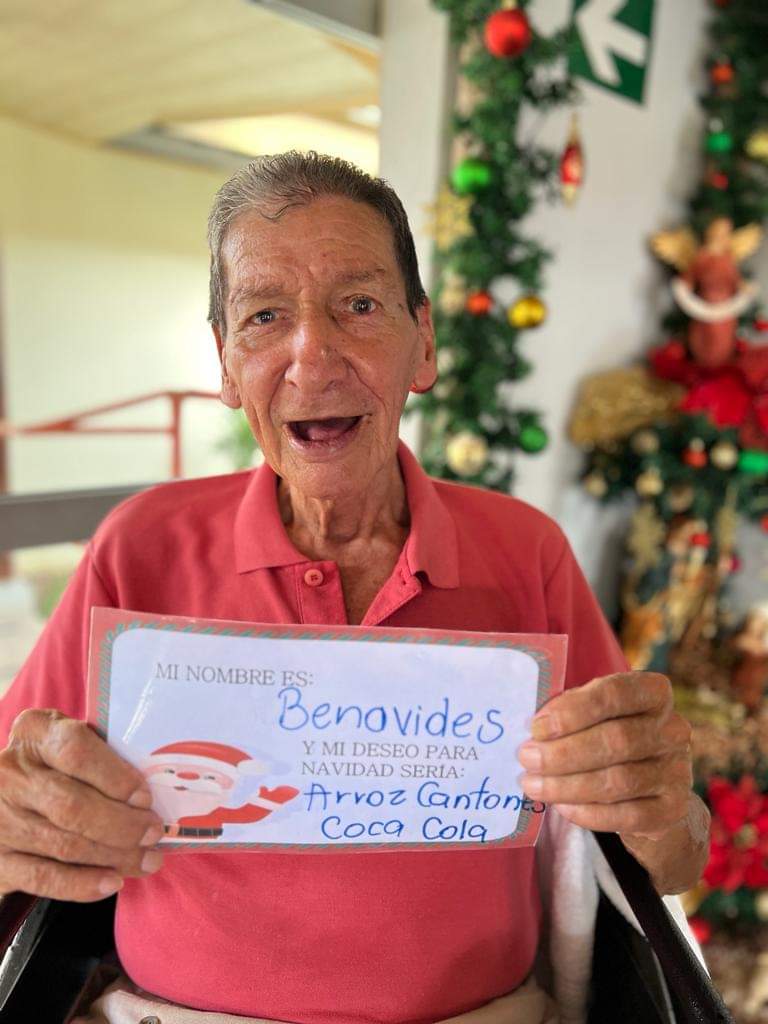 MI NOMBRE ES:
Benavides
Y MI DESEO PARA
NAVIDAD SERÍA:
Arroz Cantones
Coca Cola